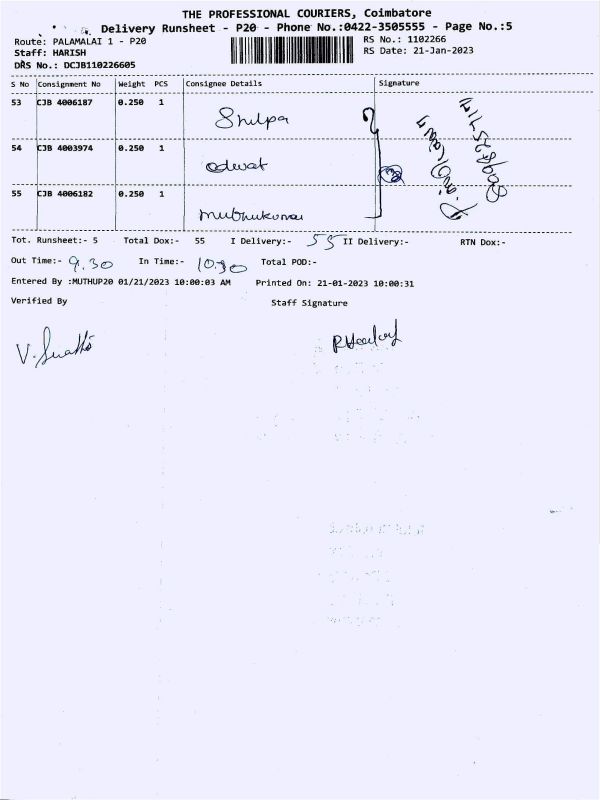 THE PROFESSIONAL COURIERS, Coimbatore
Delivery Runsheet - P20 - Phone No.:0422-3505555 - Page No.:5
Route: PALAMALAI 1 - P20
RS No.: 1102266
Staff: HARISH
RS Date: 21-Jan-2023
DRS No.: DCJB110226605
S No Consignment No Weight PCS Consignee Details Signature
53 CJB 4006187 0.250 1 Shilpa
54 CJB 4003974 0.250 1
55 CJB 4006182 0.250 1
Tot. Runsheet:- 5 Total Dox:- 55 I Delivery:- 55 II Delivery:- RTN Dox:-
Out Time:- 9.30 In Time:- 10.30 Total POD:-
Entered By :MUTHUP20 01/21/2023 10:00:03 AM Printed On: 21-01-2023 10:00:31
Verified By Staff Signature